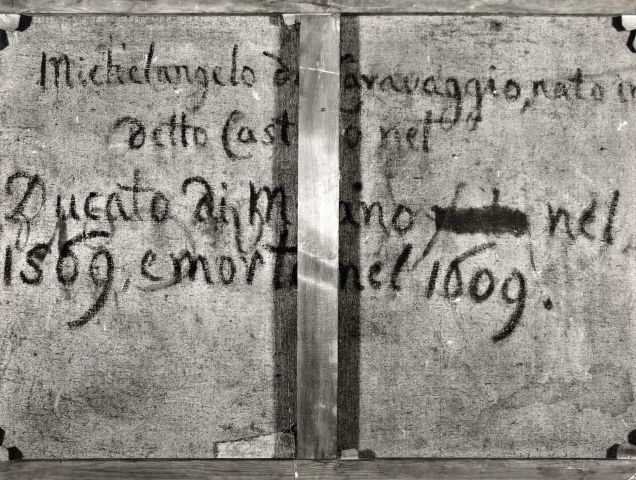 Michelangelo da Caravaggio, nato in
detto Cast o nel
Ducato di M ano nel
1569, e mort nel 1609.